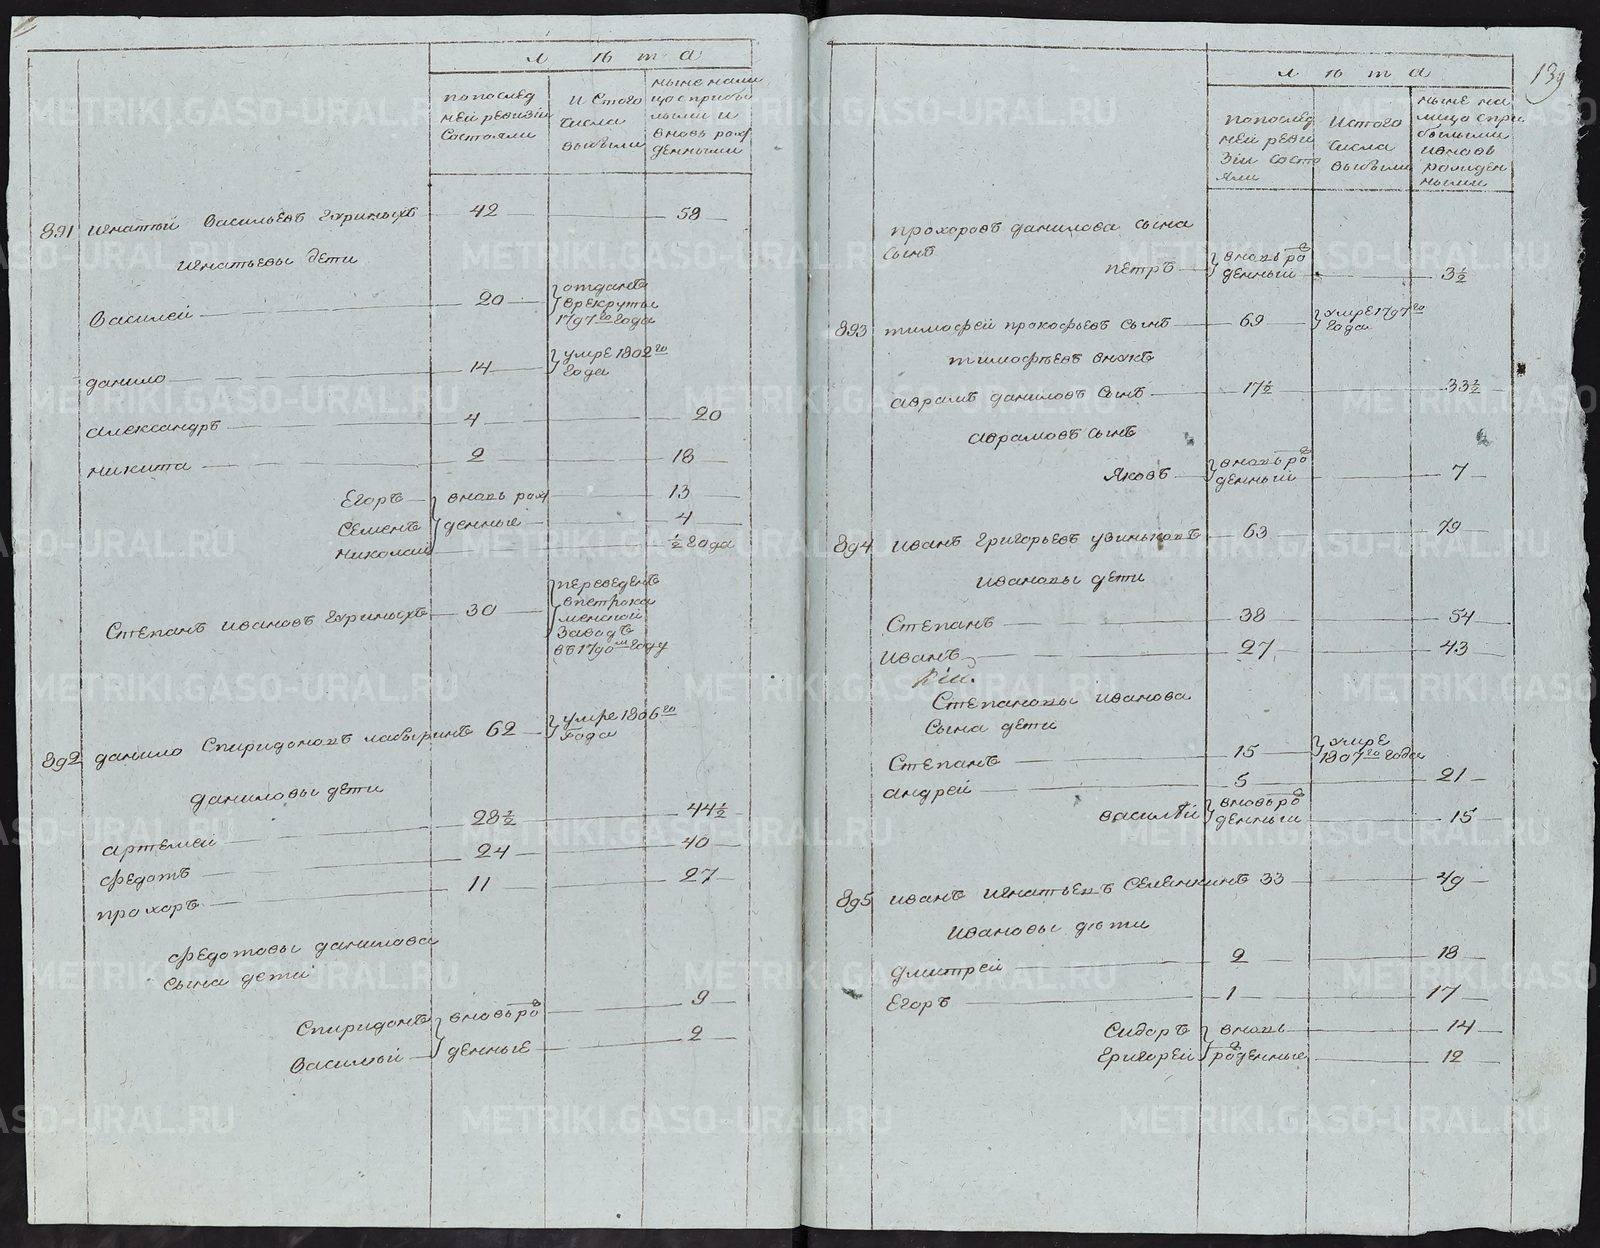 лѣта
по послед
ней ревизіи
состояли
и с того
числа
выбыли
ныне нали
цо с прибы
лыми и
вновь рож
денными
891 Игнатей Васильевъ Гуриныхъ 42 58
Игнатьевы дети
Василей 20 отданъ
в рекруты
1797го года
данило 14 умре 1802го
года
александръ 4 20
никита 2 18
Егоръ вновь рож 13
Семенъ денные 4
николай ½ года
Степанъ Ивановъ Гуриныхъ 30 переведенъ
в петрока
менской
заводъ
въ 1790м году
892 данило Спиридоновъ лабыринъ 62 умре 1806го
года
даниловы дети
артемей 28½ 44½
федотъ 24 40
прохоръ 11 27
федотовы данилова
сына дети
Спиридонъ вновь ро 9
Василий денные 2
139
лѣта
по послед
ней реви
зіи состо
яли
и с того
числа
выбыли
ныне на
лицо с при
былыми
и вновь
рожден
ными
прохоровъ данилова сына
сынъ
петръ вновь ро
денный 3½
893 тимофей прокофьевъ сынъ 69 умре 1797го
года
тимофеевъ внукъ
аврамъ даниловъ сынъ 17½ 33½
аврамовъ сынъ
Яковъ вновь ро
денный 7
894 Иванъ Григорьевъ увиньковъ 63 79
Ивановы дети
Степанъ 38 54
Иванъ 27 43
Степановы иванова
сына дети
Степанъ 15 умре
1807го года
андрей 5 21
василѣй вновь ро
денный 15
895 Иванъ Игнатьевъ Семенкинъ 33 49
Ивановы дѣти
дмитрей 2 18
Егоръ 1 17
Сидоръ вновь 14
Григорей роденные 12
METRIKI.GASO-URAL.RU